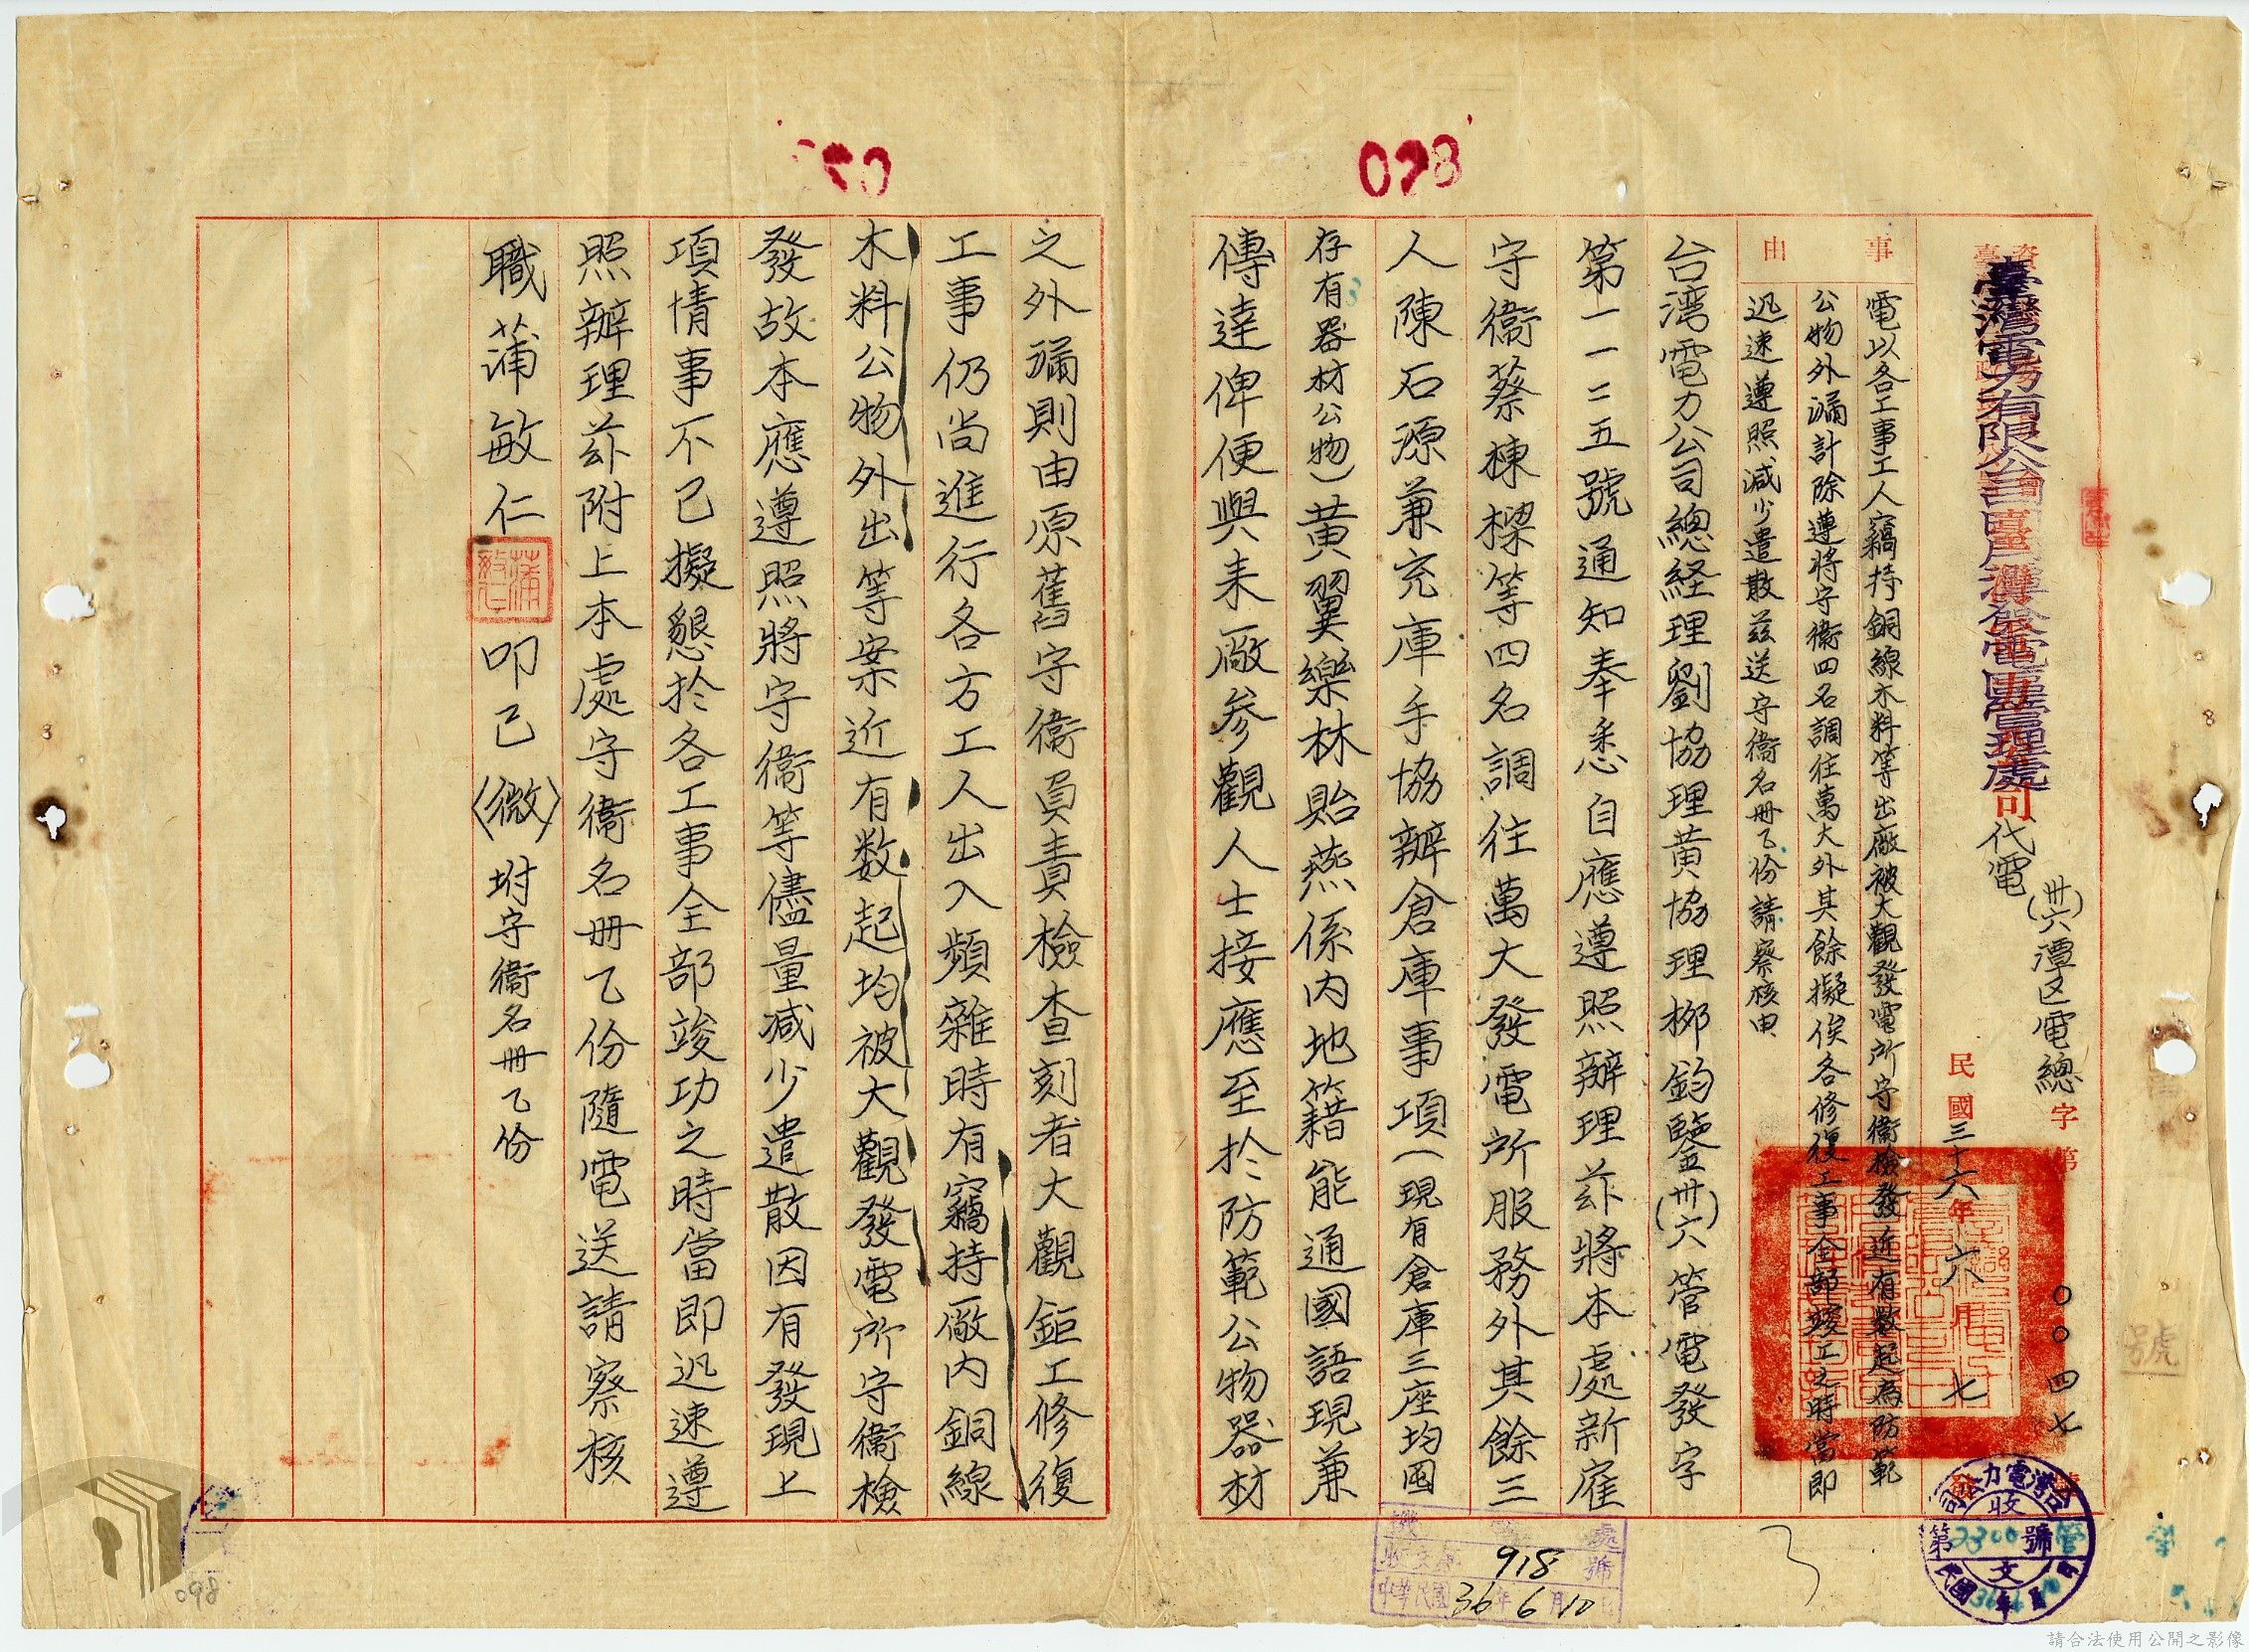 臺灣電力有限公司 代電
(卅六)潭区電總字第〇〇四七號
民國三十六年六月七
事由
電以各工事工人竊持銅線木料等出廠被大觀發電所守衛檢發近有數起為防範
公物外漏計除遵將守衛四名調往萬大外其餘擬俟各修復工事全部竣工之時當即
迅速遵照减少遣散茲送守衛名册乙份請察核由
台湾電力公司總経理劉協理黄協理柳鈞鑒(卅六)管電發字
第一一二五號通知奉悉自應遵照辦理茲將本處新雇
守衛蔡棟樑等四名調往萬大發電所服務外其餘三
人陳石源兼充庫手協辦倉庫事項(現有倉庫三座均囤
存有器材公物)黄翼樂林貽燕係内地籍能通國語現兼
傳達俾便與来廠参觀人士接應至於防範公物器材
之外漏則由原舊守衛負責檢查刻者大觀鉅工修復
工事仍尚進行各方工人出入頻雜時有竊持廠内銅線
木料公物外出等案近有数起均被大觀發電所守衛檢
發故本應遵照將守衛等儘量减少遣散因有發現上
項情事不已擬懇於各工事全部竣功之時當即迅速遵
照辦理茲附上本處守衛名册乙份隨電送請察核
職蒲敏仁叩己(微)坿守衛名册乙份
台灣電力公司
收
第2300號
文
處
收文
918號
中華民國36年6月10
098
098
請合法使用公開之影像